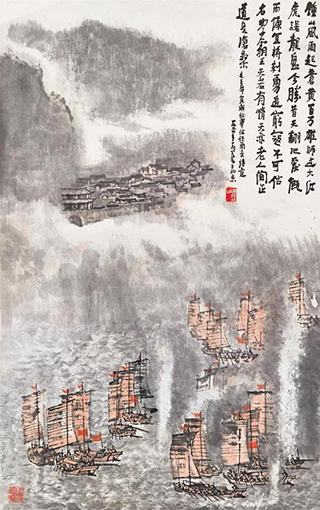 鍾山風雨起蒼黄百万雄师过大江
虎踞龍盘今勝昔天翻地覆慨
而慷宜将剩勇追窮寇不可沽
名学霸王天若有情天亦老人间正
道是滄桑